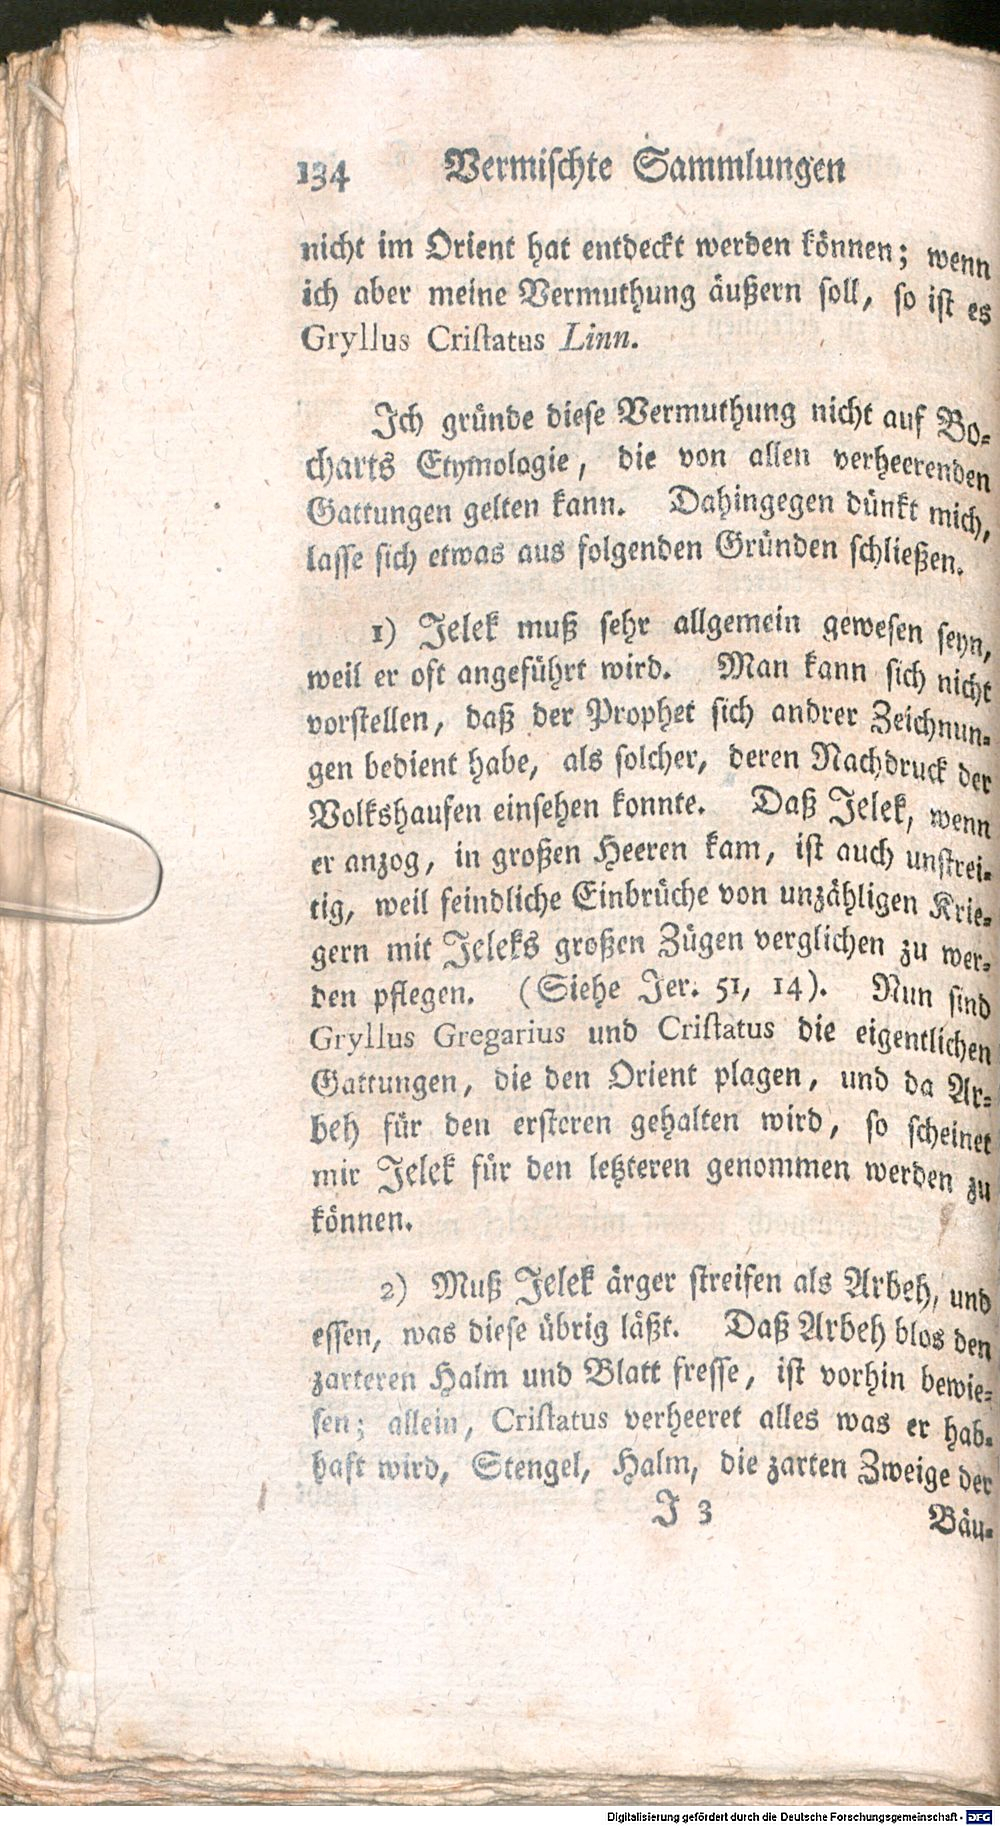 134 Vermischte Sammlungen
nicht im Orient hat entdeckt werden können; wenn
ich aber meine Vermuthung äußern soll, so ist es
Gryllus Criſtatus Linn.
Ich gründe diese Vermuthung nicht auf Bo-
charts Etymologie, die von allen verheerenden
Gattungen gelten kann. Dahingegen dünkt mich,
lasse sich etwas aus folgenden Gründen schließen.
1) Jelek muß sehr allgemein gewesen seyn,
weil er oft angeführt wird. Man kann sich nicht
vorstellen, daß der Prophet sich andrer Zeichnun-
gen bedient habe, als solcher, deren Nachdruck der
Volkshaufen einsehen konnte. Daß Jelek, wenn
er anzog, in großen Heeren kam, ist auch unstrei-
tig, weil feindliche Einbrüche von unzähligen Krie-
gern mit Jeleks großen Zügen verglichen zu wer-
den pflegen. (Siehe Jer. 51, 14). Nun sind
Gryllus Gregarius und Criſtatus die eigentlichen
Gattungen, die den Orient plagen, und da Ar-
beh für den ersteren gehalten wird, so scheinet
mir Jelek für den letzteren genommen werden zu
können.
2) Muß Jelek ärger streifen als Arbeh, und
essen, was diese übrig läßt. Daß Arbeh blos den
zarteren Halm und Blatt fresse, ist vorhin bewie-
sen; allein, Criſtatus verheeret alles was er hab-
haft wird, Stengel, Halm, die zarten Zweige der
J 3 Bäu-
Digitalisierung gefördert durch die Deutsche Forschungsgemeinschaft - DFG